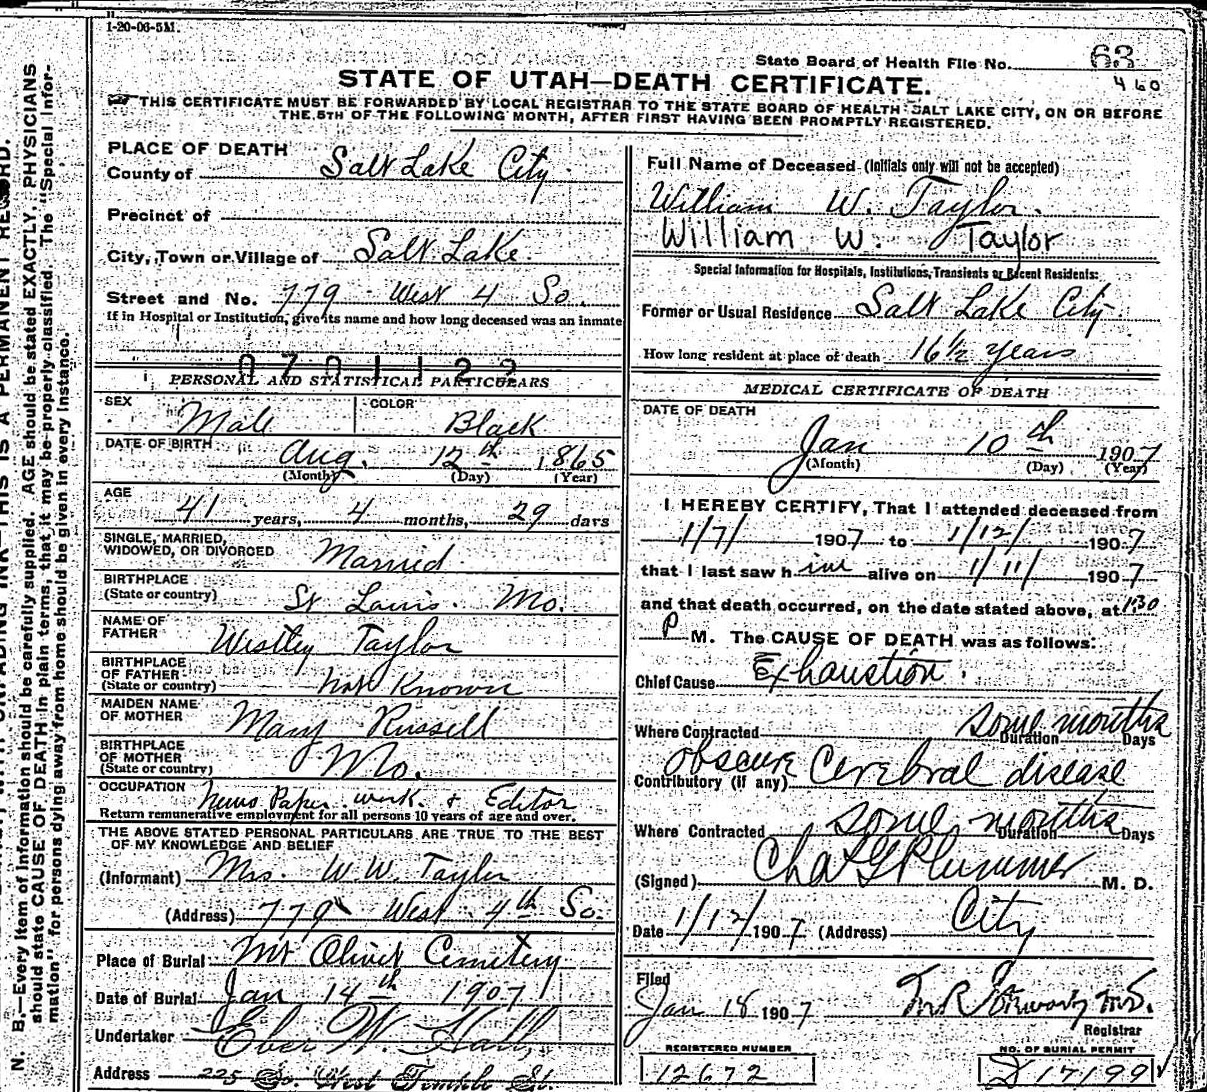 1-20-06-5M.
State Board of Health File No. 63
460
STATE OF UTAH—DEATH CERTIFICATE.
THIS CERTIFICATE MUST BE FORWARDED BY LOCAL REGISTRAR TO THE STATE BOARD OF HEALTH SALT LAKE CITY, ON OR BEFORE
THE 5TH OF THE FOLLOWING MONTH, AFTER FIRST HAVING BEEN PROMPTLY REGISTERED.
PLACE OF DEATH
County of Salt Lake City
Precinct of
City, Town or Village of Salt Lake
Street and No. 779 West 4 So.
If in Hospital or Institution, give its name and how long deceased was an inmate
0701122
PERSONAL AND STATISTICAL PARTICULARS
SEX Male COLOR Black
DATE OF BIRTH Aug. 12th 1865
(Month) (Day) (Year)
AGE
41 years, 4 months, 29 days
SINGLE, MARRIED,
WIDOWED, OR DIVORCED Married
BIRTHPLACE
(State or country) St Louis. Mo.
NAME OF
FATHER Westley Taylor
BIRTHPLACE
OF FATHER
(State or country) Not Known
MAIDEN NAME
OF MOTHER Mary Russell
BIRTHPLACE
OF MOTHER
(State or country) Mo.
OCCUPATION News Paper work & Editor
Return remunerative employment for all persons 10 years of age and over.
THE ABOVE STATED PERSONAL PARTICULARS ARE TRUE TO THE BEST
OF MY KNOWLEDGE AND BELIEF
(Informant) Mrs. W.W. Taylor
(Address) 779 West 4th So.
Place of Burial Mt Olivet Cemetery
Date of Burial Jan 14th 1907
Undertaker Eber W. Hall,
Address 225 So. West Temple St.
Full Name of Deceased (Initials only will not be accepted)
William W. Taylor.
William W. Taylor
Special Information for Hospitals, Institutions, Transients or Recent Residents:
Former or Usual Residence Salt Lake City
How long resident at place of death 16½ years
MEDICAL CERTIFICATE OF DEATH
DATE OF DEATH
Jan 10th 1907
(Month) (Day) (Year)
I HEREBY CERTIFY, That I attended deceased from
1/7/ 1907 to 1/12/ 1907
that I last saw him alive on 1/11/ 1907
and that death occurred, on the date stated above, at 1:30
P M. The CAUSE OF DEATH was as follows:
Chief Cause Exhaustion.
Where Contracted some months
Duration Days
Contributory (if any) obscure Cerebral disease
Where Contracted some months
Duration Days
(Signed) Chas G Plummer M. D.
Date 1/12/ 1907 (Address) City
Filed
Jan 18 1907
Registrar
REGISTERED NUMBER
12672
NO. OF BURIAL PERMIT
17199
N. B.—Every item of information should be carefully supplied. AGE should be stated EXACTLY. PHYSICIANS
should state CAUSE OF DEATH in plain terms, that it may be properly classified. The "Special Infor-
mation" for persons dying away from home should be given in every instance.
THIS IS A PERMANENT RECORD.